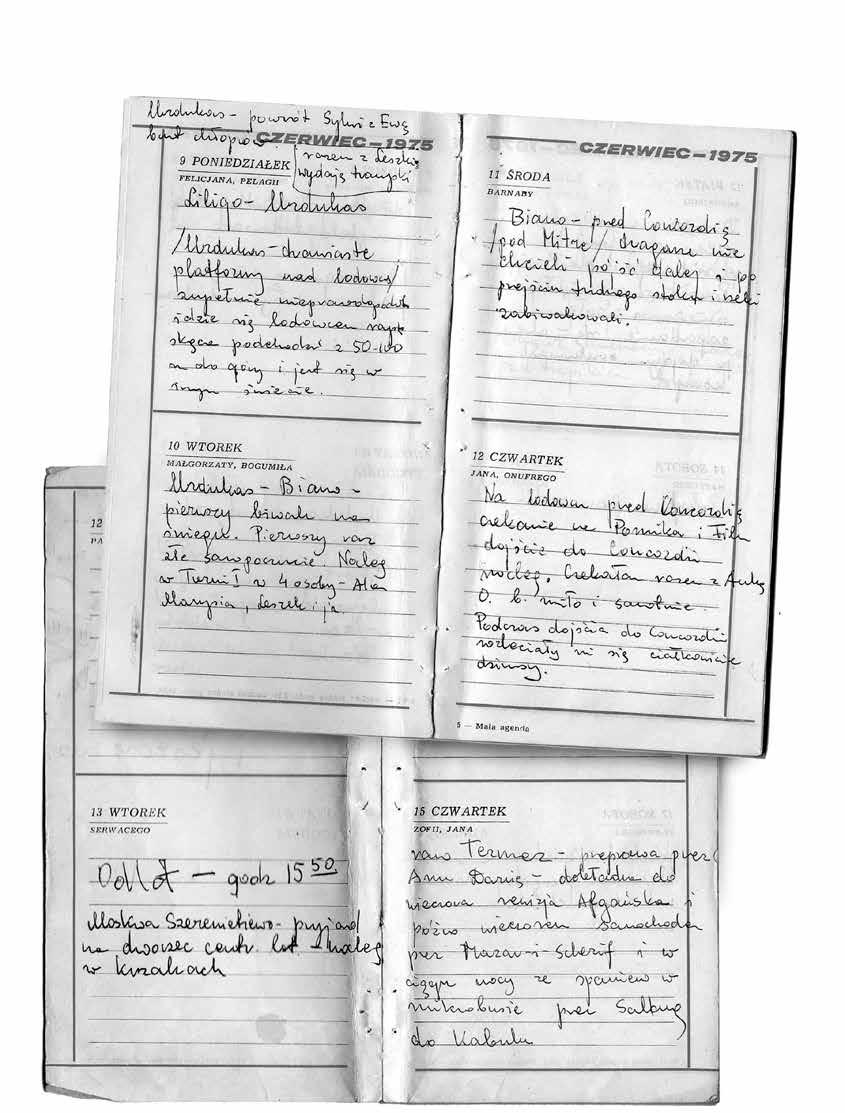 Urdukas - powrót Sylwii z Ewą
bunt chłopów
CZERWIEC—1975
razem z Leszkie
wydają trampki
9 PONIEDZIAŁEK
FELICJANA, PELAGII
Liligo - Urdukas
/Urdukas - trawiaste
platformy nad lodowcem/
zupełnie nieprawdopodob
idzie się lodowcem
skręca podchodzi z 50-100
m do góry i jest się w
innym świecie.
10 WTOREK
MAŁGORZATY, BOGUMIŁA
Urdukas - Biano -
pierwszy biwak na
śniegu. Pierwszy raz
złe samopoczucie. Nocleg
w Turni I w 4 osoby - Ala
Marysia, Leszek i ja.
CZERWIEC—1975
11 ŚRODA
BARNABY
Biano - przed Concordią
/pod Mitre/ tragarze nie
chcieli pójść dalej i po
przejściu trudnego stoku i rzeki
zabiwakowali.
12 CZWARTEK
JANA, ONUFREGO
Na lodowcu przed Concordią
czekanie na Pomnika i Film
dojście do Concordii
nocleg. Czekałam razem z Anką
O. b. miło i samotnie.
Podczas dojścia do Concordii
rozleciały mi się całkowicie
dżinsy.
5 — Mała agenda
12
PA
13 WTOREK
SERWACEGO
Odlot — godz 15 50
Moskwa Szeremietiewo - przyjazd
na dworzec centr. lot - nocleg
w krzakach
15 CZWARTEK
ZOFII, JANA
rano Termez - przeprawa przez
Amu Darię - dokładna do
wieczora rewizja Afgańska i
późno wieczorem samochodem
przez Mazar-i-Scherif i w
ciągu nocy ze spaniem w
mikrobusie przez Salang
do Kabulu